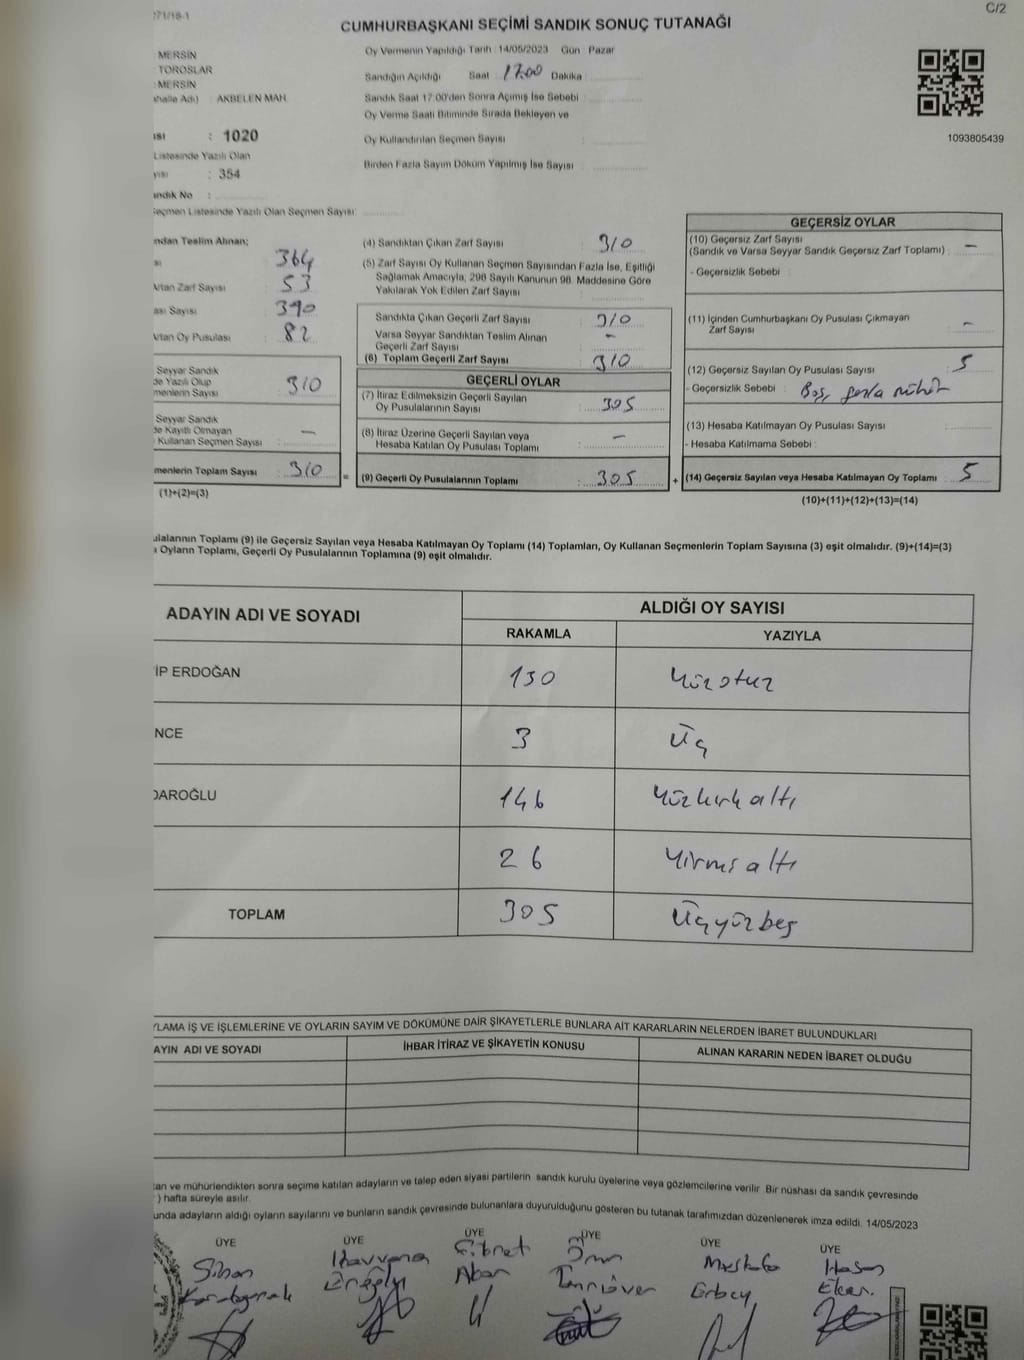 271/18-1
C/2
CUMHURBAŞKANI SEÇİMİ SANDIK SONUÇ TUTANAĞI
: MERSİN
: TOROSLAR
: MERSİN
ahalle Adı) : AKBELEN MAH.
ısı : 1020
Listesinde Yazılı Olan
yısı : 354
andık No :
Seçmen Listesinde Yazılı Olan Seçmen Sayısı:
Oy Vermenin Yapıldığı Tarih : 14/05/2023 Gün : Pazar
Sandığın Açıldığı Saat : 17.00 Dakika :
Sandık Saat 17:00'den Sonra Açılmış İse Sebebi :
Oy Verme Saati Bitiminde Sırada Bekleyen ve
Oy Kullandırılan Seçmen Sayısı :
Birden Fazla Sayım Döküm Yapılmış İse Sayısı :
1093805439
ndan Teslim Alınan;
sı : 364
Artan Zarf Sayısı : 53
ası Sayısı : 390
Artan Oy Pusulası : 82
Seyyar Sandık
de Yazılı Olup
menlerin Sayısı : 310
Seyyar Sandık
de Kayıtlı Olmayan
Kullanan Seçmen Sayısı : –
menlerin Toplam Sayısı : 310 =
(1)+(2)=(3)
(4) Sandıktan Çıkan Zarf Sayısı : 310
(5) Zarf Sayısı Oy Kullanan Seçmen Sayısından Fazla İse, Eşitliği
Sağlamak Amacıyla, 298 Sayılı Kanunun 98. Maddesine Göre
Yakılarak Yok Edilen Zarf Sayısı :
Sandıkta Çıkan Geçerli Zarf Sayısı : 310
Varsa Seyyar Sandıktan Teslim Alınan
Geçerli Zarf Sayısı : –
(6) Toplam Geçerli Zarf Sayısı : 310
GEÇERLİ OYLAR
(7) İtiraz Edilmeksizin Geçerli Sayılan
Oy Pusulalarının Sayısı : 305
(8) İtiraz Üzerine Geçerli Sayılan veya
Hesaba Katılan Oy Pusulası Toplamı : –
(9) Geçerli Oy Pusulalarının Toplamı : 305 +
GEÇERSİZ OYLAR
(10) Geçersiz Zarf Sayısı
(Sandık ve Varsa Seyyar Sandık Geçersiz Zarf Toplamı) : –
- Geçersizlik Sebebi :
(11) İçinden Cumhurbaşkanı Oy Pusulası Çıkmayan
Zarf Sayısı : –
(12) Geçersiz Sayılan Oy Pusulası Sayısı : 5
- Geçersizlik Sebebi : Boş, fazla mühür
(13) Hesaba Katılmayan Oy Pusulası Sayısı :
- Hesaba Katılmama Sebebi :
(14) Geçersiz Sayılan veya Hesaba Katılmayan Oy Toplamı : 5
(10)+(11)+(12)+(13)=(14)
ulalarının Toplamı (9) ile Geçersiz Sayılan veya Hesaba Katılmayan Oy Toplamı (14) Toplamları, Oy Kullanan Seçmenlerin Toplam Sayısına (3) eşit olmalıdır. (9)+(14)=(3)
ı Oyların Toplamı, Geçerli Oy Pusulalarının Toplamına (9) eşit olmalıdır.
ADAYIN ADI VE SOYADI ALDIĞI OY SAYISI
RAKAMLA YAZIYLA
İP ERDOĞAN 130 Yüzotuz
NCE 3 Üç
DAROĞLU 146 Yüzkırkaltı
26 Yirmialtı
TOPLAM 305 Üçyüzbeş
YLAMA İŞ VE İŞLEMLERİNE VE OYLARIN SAYIM VE DÖKÜMÜNE DAİR ŞİKAYETLERLE BUNLARA AİT KARARLARIN NELERDEN İBARET BULUNDUKLARI
AYIN ADI VE SOYADI İHBAR İTİRAZ VE ŞİKAYETİN KONUSU ALINAN KARARIN NEDEN İBARET OLDUĞU
an ve mühürlendikten sonra seçime katılan adayların ve talep eden siyasi partilerin sandık kurulu üyelerine veya gözlemcilerine verilir. Bir nüshası da sandık çevresinde
) hafta süreyle asılır.
unda adayların aldığı oyların sayılarını ve bunların sandık çevresinde bulunanlara duyurulduğunu gösteren bu tutanak tarafımızdan düzenlenerek imza edildi. 14/05/2023
ÜYE ÜYE ÜYE ÜYE ÜYE ÜYE
Mustafa Hasan
Tanrıöver